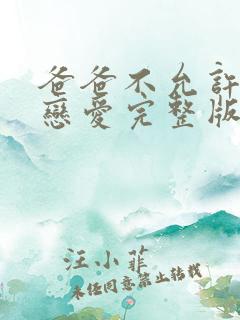 爸爸不允許
戀愛完整版
汪小菲
未经同意禁止转载